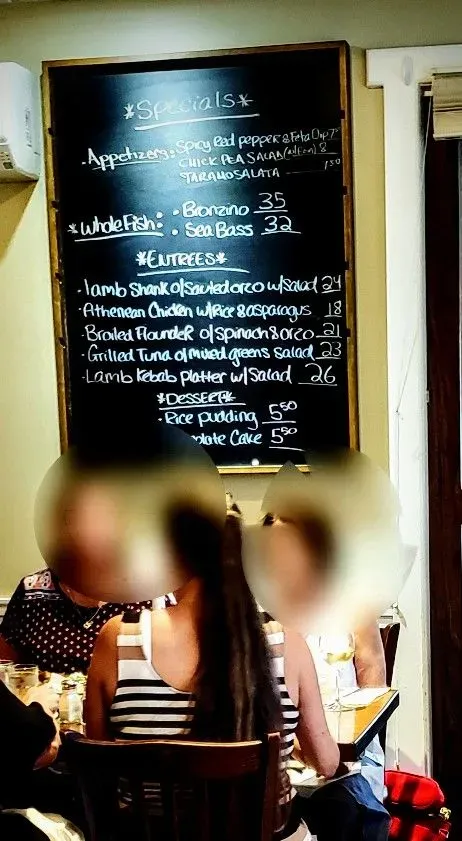 *Specials*
• Appetizers: Spicy Red pepper & Feta Dip 7
CHICK PEA SALAD 8
TARAMOSALATA
*Whole Fish: • Bronzino 35
• Sea Bass 32
*ENTREES*
• Lamb Shank o/Sauteed orzo w/Salad 24
• Athenean Chicken w/Rice & asparagus 18
• Broiled Flounder o/Spinach & orzo 21
• Grilled Tuna o/mixed greens salad 23
• Lamb Kebab platter w/Salad 26
*DESSERT*
• Rice pudding 5.50
Cake 5.50